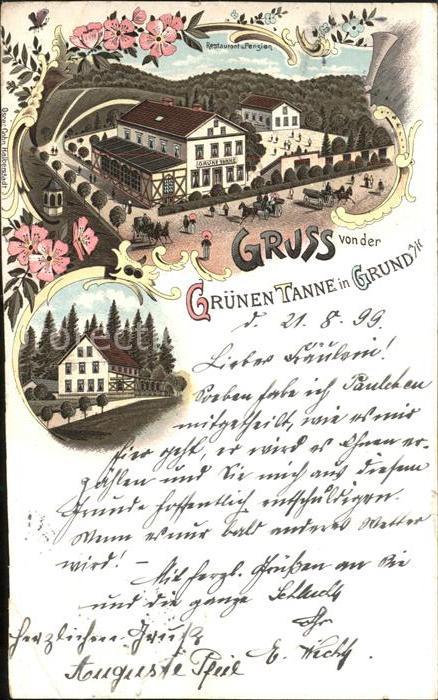 Restaurant u. Pension
GRÜNE TANNE
Oscar Cohn, Halberstadt
GRUSS von der
GRÜNEN TANNE in GRUND a/H
d. 21. 8. 99.
Liebes Fräulein!
Soeben habe ich Paulchen
mitgetheilt, wie es mir
hier geht, er wird es Ihnen er-
zählen und Sie mich aus diesem
Grunde hoffentlich entschuldigen.
Wenn es nur bald anderes Wetter
wird! –
Mit herzl. Grüßen an Sie
und die ganze
Ihr
herzlichen Gruß
E.
Auguste Pfeil